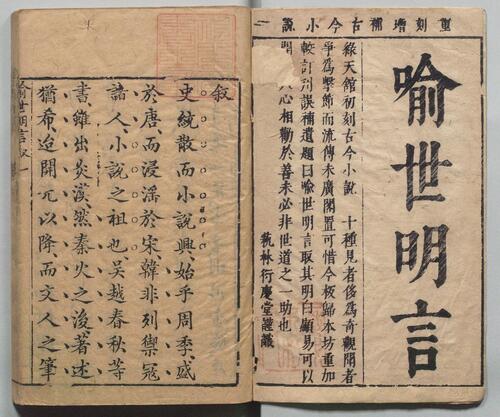 重刻增補古今小說一
喻世明言
綠天館初刻古今小說 十種見者侈爲奇觀聞者
爭爲擊節而流傳未廣閣置可惜今板歸本坊重加
較訂刊誤補遺題曰喻世明言取其明白顯易可以
開 人心相勸於善未必非世道之一助也
藝林衍慶堂謹識
叙
史統散而小說興始乎周季盛
於唐而浸淫於宋韓非列禦寇
諸人小說之祖也吳越春秋等
書雖出炎漢然秦火之後著述
猶希迨開元以降而文人之筆
喻世明言叙 一